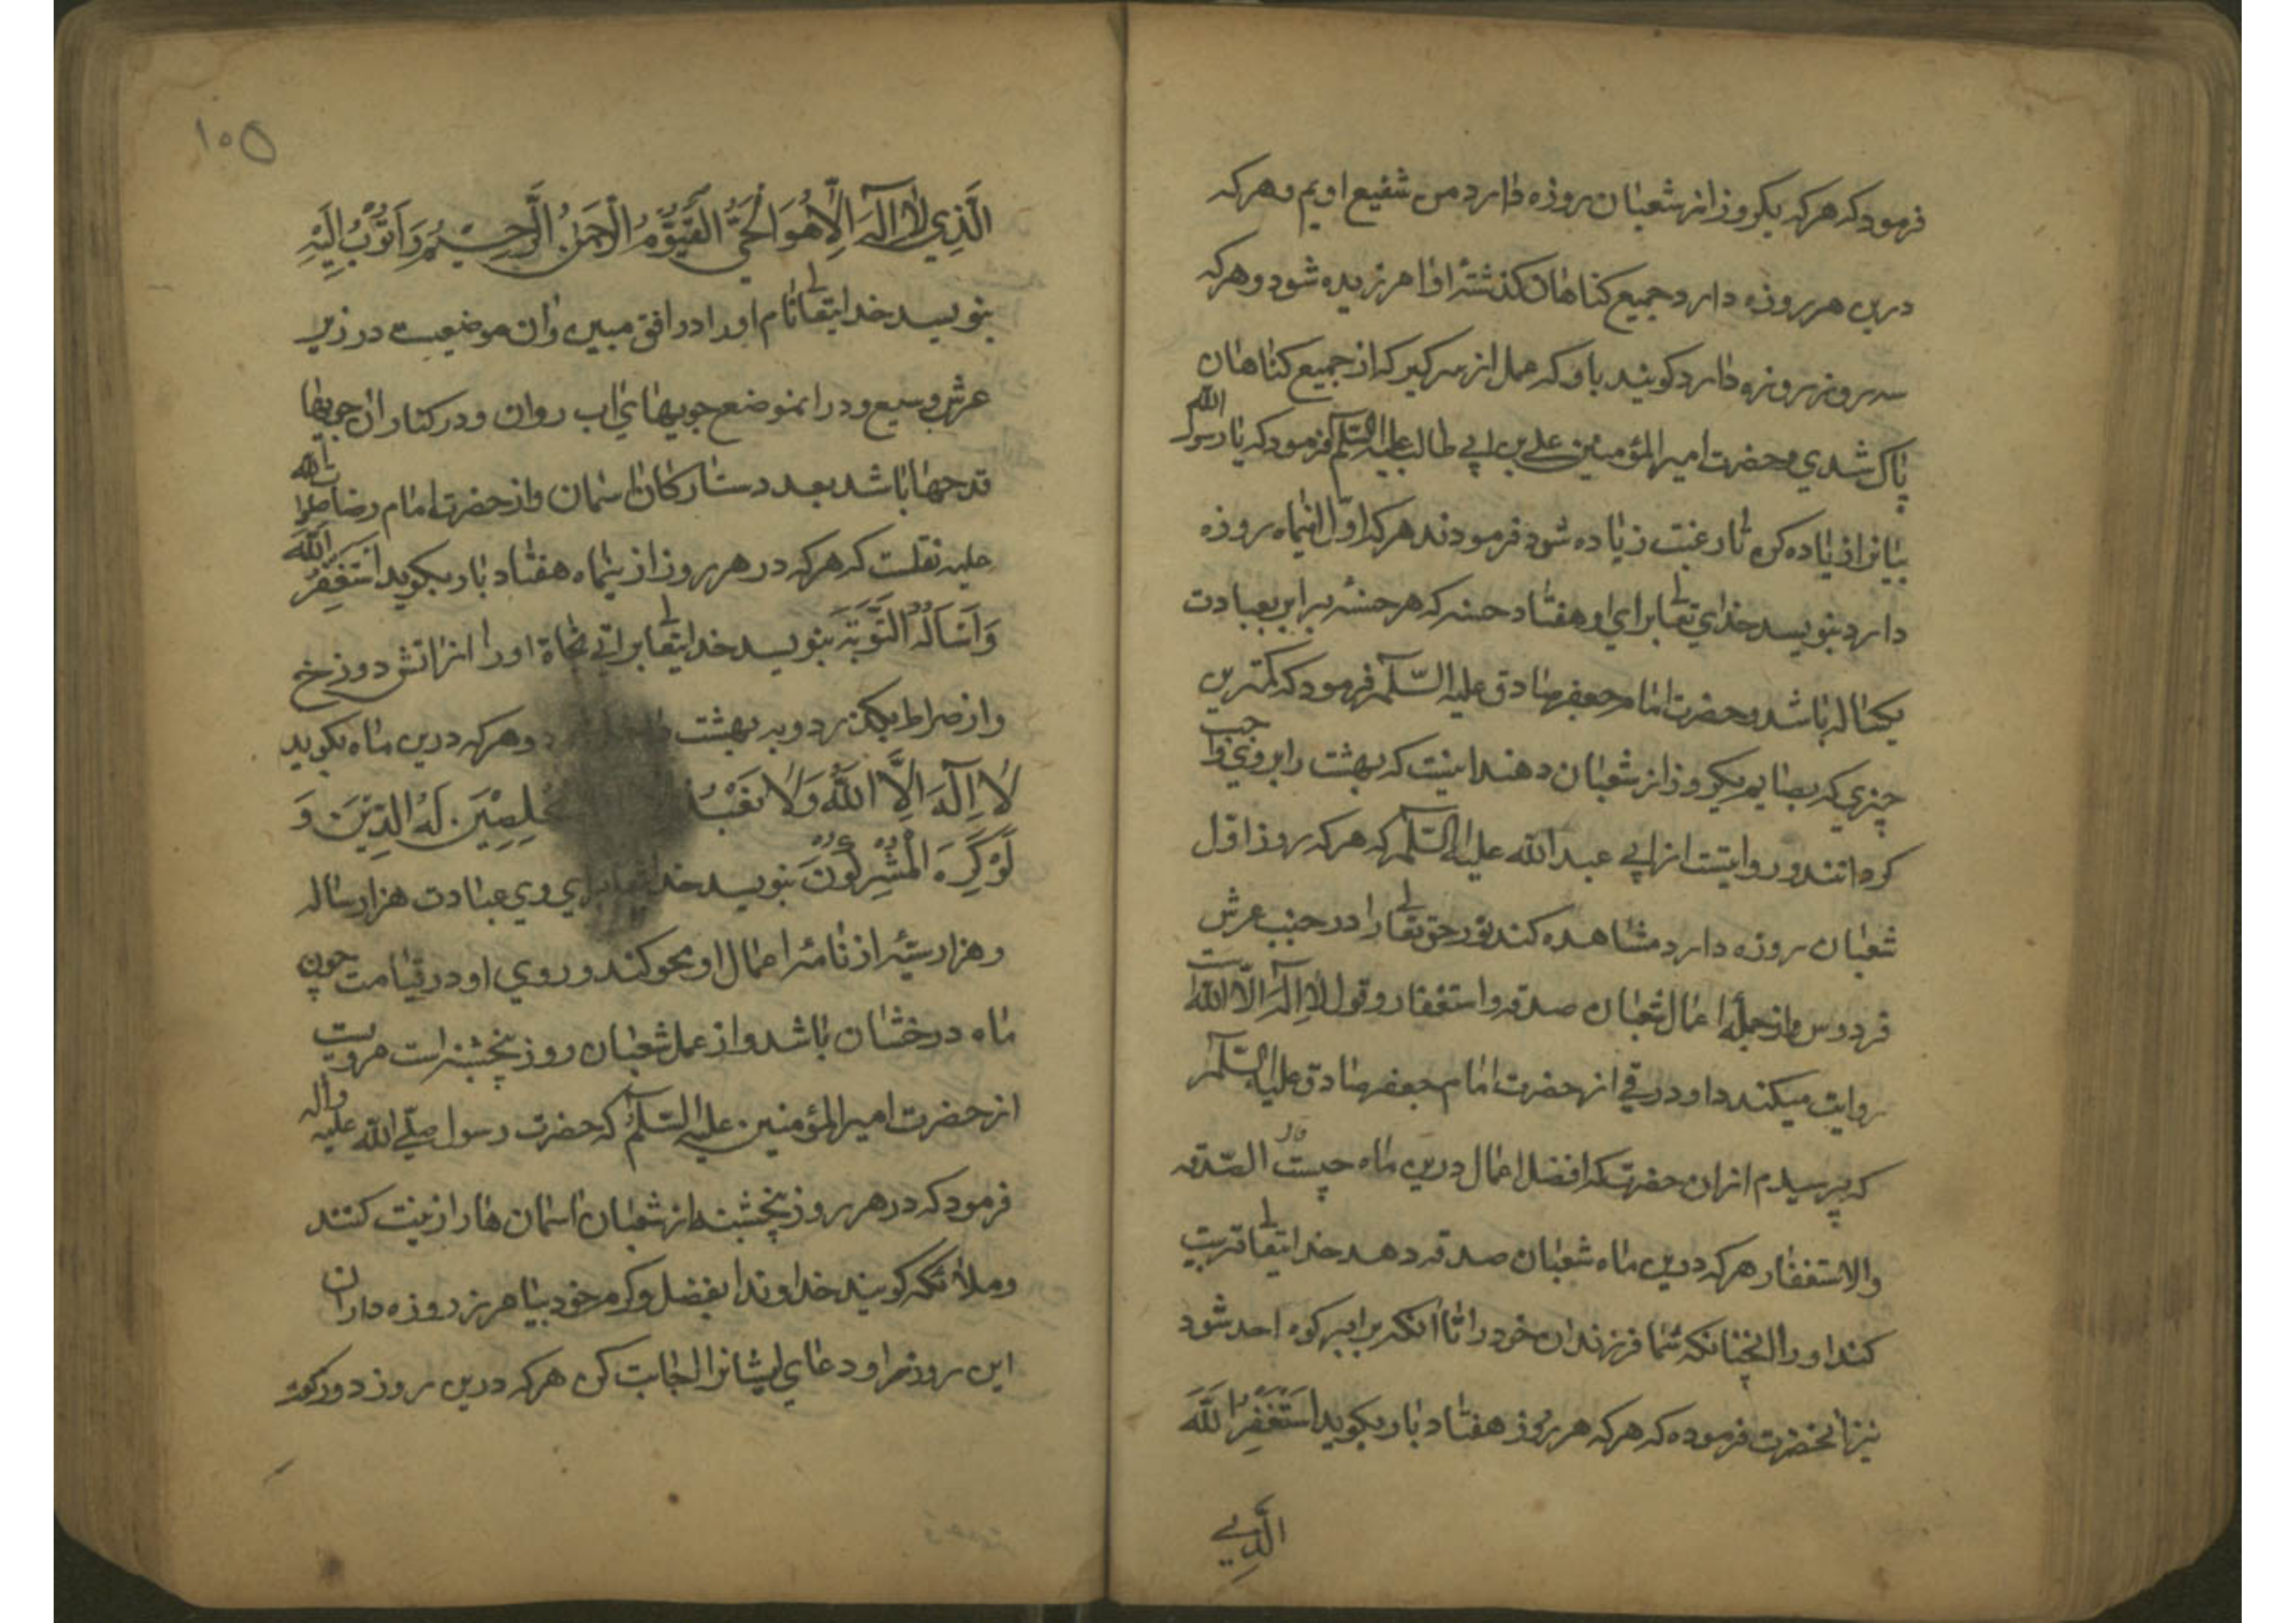 فرمود که هر که یکروز از شعبان روزه دارد من شفیع اویم و هر که
درین هر روزه دارد جمیع کناهان کذشتهٔ او امرزیده شود و هر که
سه روز روزه دارد کویند باو که عمل از سر کیر که از جمیع کناهان
پاک شدی و حضرت امیر المؤمنین علی بن ابی طالب علیه السّلم فرمود که یا رسول الله
بیانرا زیاده کن تا رغبت زیاده شود فرمودند هر که اوّل اینماه روزه
دارد بنویسد خدای تعالی برای او هفتاد حسنه که هر حسنه برابر بعبادت
یکساله باشد و حضرت امام جعفر صادق علیه السّلم فرمود که کمترین
چیزی که بصایم یکروز از شعبان دهند اینست که بهشت را بروی واجب
کردانند و روایتست از ابی عبد الله علیه السّلم که هر که روز اول
شعبان روزه دارد مشاهده کند نور حق تعالی را در جنب عرش
فردوس و از جملهٔ اعمال شعبان صدقه و استغفار و قول لا اله الّا الله است
روایت میکند داود رقی از حضرت امام جعفر صادق علیه السّلم
که پرسیدم از ان حضرت که افضل اعمال درین ماه چیست قال الصّدقه
والاستغفار هر که درین ماه شعبان صدقه دهد خدایتعالی تربیت
کند او را انچنانکه شما فرزندان خود را تا انکه برابر کوه احد شود
نیز انحضرت فرموده که هر که هر روز هفتاد بار بکوید اَسْتَغْفِرُ اللَّهَ
الَّذِی
۱۰۵
الَّذِي لاٰ اِلٰهَ اِلَّا هُوَ الْحَيُّ الْقَيُّوْمُ الرَّحْمٰنُ الرَّحِيْمُ وَ اَتُوْبُ اِلَيْهِ
بنویسد خدایتعالی نام او را در افق مبین و ان موضعیست در زیر
عرش وسیع و در انموضع جویهای اب روان و در کنار ان جویها
قدحها باشد بعدد ستارکان اسمان و از حضرت امام رضا صلوات الله
علیه نقلست که هر که در هر روز از ینماه هفتاد بار بکوید اَسْتَغْفِرُ اللَّهَ
وَ اَسْاَلُهُ التَّوْبَةَ بنویسد خدایتعالی براتی نجاة او را از اتش دوزخ
و از صراط بکذرد و به بهشت و هر که درین ماه بکوید
لاٰ اِلٰهَ اِلَّا اللّٰهُ وَلاٰ نَعْبُدُ مُخْلِصِيْنَ لَهُ الدِّيْنَ وَ
لَوْ كَرِهَ الْمُشْرِكُوْنَ بنویسد خدایتعالی برای وی عبادت هزار ساله
و هزار سیّئه از نامهٔ اعمال او محو کند و روی او در قیامت چون
ماه درخشان باشد و از عمل شعبان روز پنجشنبه است مرویست
از حضرت امیر المؤمنین علیه السّلم که حضرت رسول صلّی الله علیه واله
فرمود که در هر روز پنجشنبه از شعبان اسمان ها را زینت کنند
و ملائکه کویند خداوندا بفضل و کرم خود بیامرز روزه داران
این روز را و دعای ایشانرا اجابت کن هر که درین روز دو رکعت